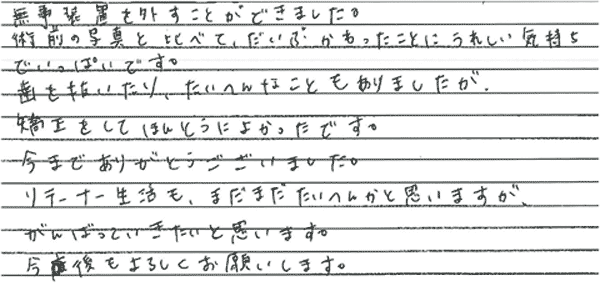 無事装置を外すことができました。
術前の写真と比べて、だいぶかわったことにうれしい気持ち
でいっぱいです。
歯を抜いたり、たいへんなこともありましたが、
矯正をしてほんとうによかったです。
今までありがとうございました。
リテーナー生活も、まだまだたいへんかと思いますが、
がんばっていきたいと思います。
今後もよろしくお願いします。